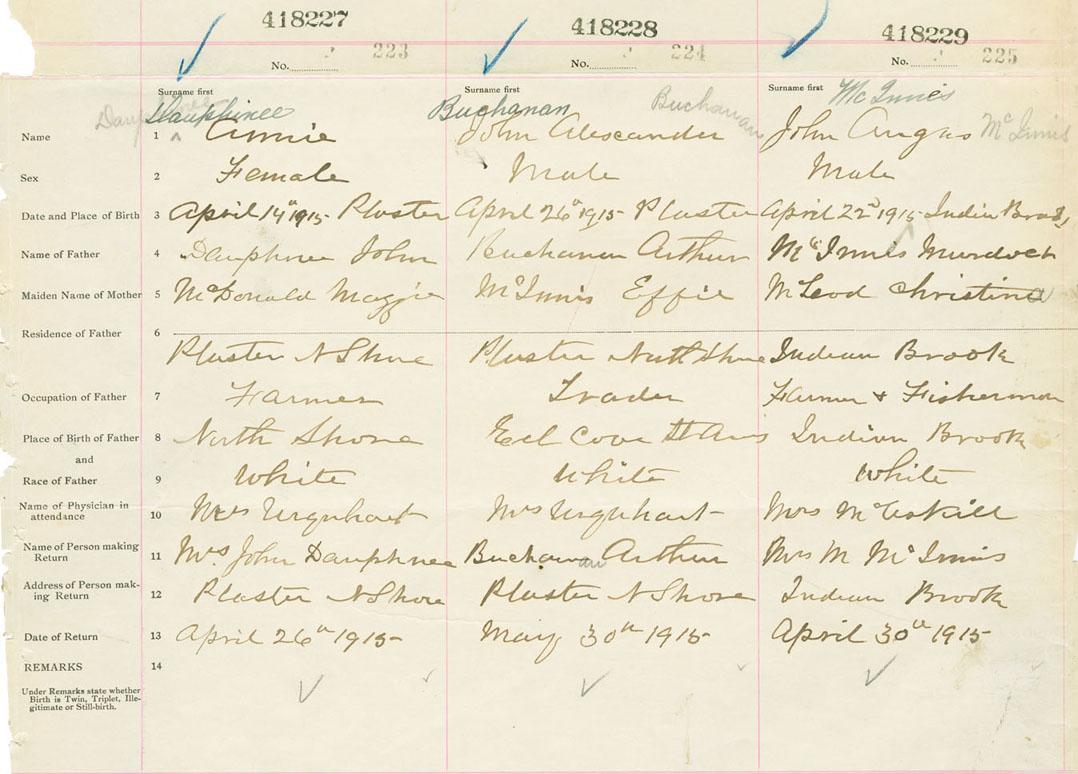 418227 418228 418229
No. 223 No. 224 No. 225
Surname first Surname first Surname first
Dauphinee Buchanan Buchanan McInnis McInnis
Name 1 Annie John Alexander John Angus
Sex 2 Female Male Male
Date and Place of Birth 3 April 14th 1915 Plaster April 26th 1915 Plaster April 22d 1915 Indian Brook
Name of Father 4 Dauphnee John Buchanan Arthur McInnis Murdoch
Maiden Name of Mother 5 McDonald Maggie McInnis Effie McLeod Christina
Residence of Father 6
Plaster N Shore Plaster North Shore Indian Brook
Occupation of Father 7 Farmer Trader Farmer & Fisherman
Place of Birth of Father 8 North Shore Eel Cove St Anns Indian Brook
and
Race of Father 9 White White White
Name of Physician in
attendance 10 Mrs Urquhart Mrs Urquhart Mrs McAskill
Name of Person making
Return 11 Mrs. John Dauphnee Buchanan Arthur Mrs M McInnis
Address of Person mak-
ing Return 12 Plaster N Shore Plaster N Shore Indian Brook
Date of Return 13 April 26th 1915 May 30th 1915 April 30th 1915
REMARKS 14
Under Remarks state whether
Birth is Twin, Triplet, Ille-
gitimate or Still-birth.